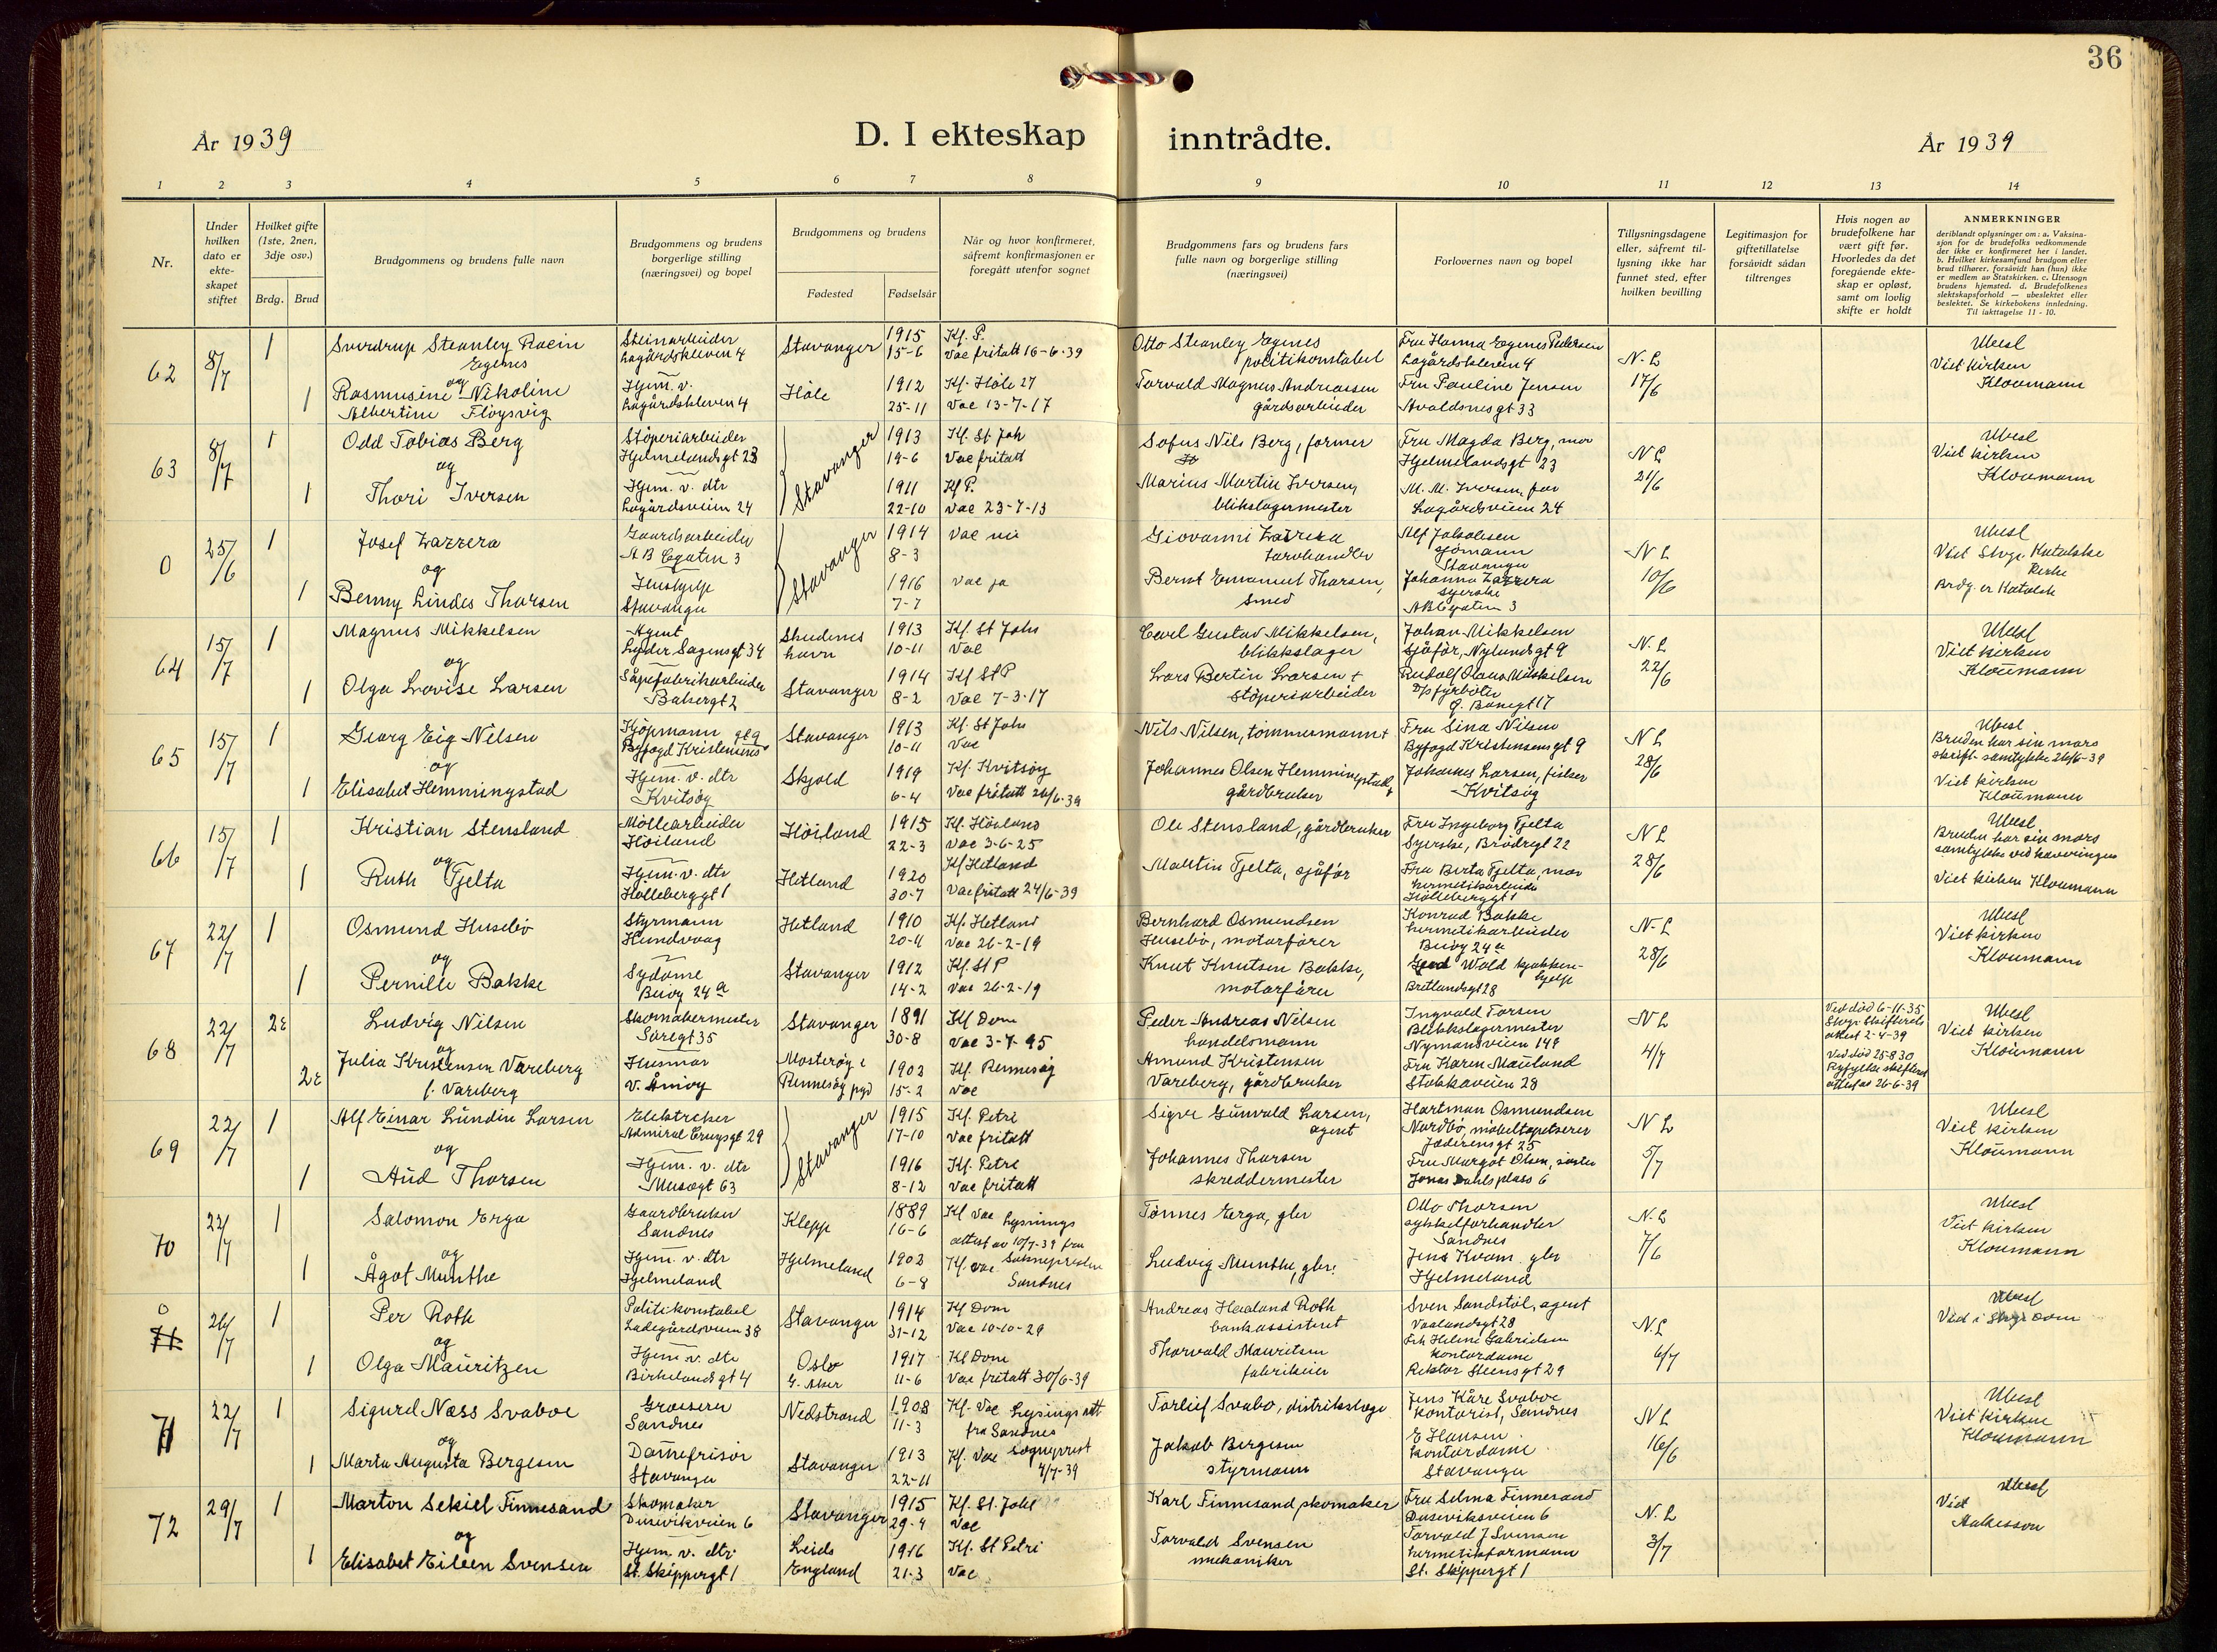 36
År 1939
D. I ekteskap inntrådte.
År 1939
1 2 3 4 5 6 7 8 9 10 11 12 13 14
Nr.
Under hvilken dato er ekte-skapet stiftet
Hvilket gifte (1ste, 2nen, 3dje osv.)
Brdg. Brud
Brudgommens og brudens fulle navn
Brudgommens og brudens borgerlige stilling (næringsvei) og bopel
Brudgommens og brudens
Fødested
Fødselsår
Når og hvor konfirmeret, såfremt konfirmasjonen er foregått utenfor sognet
Brudgommens fars og brudens fars fulle navn og borgerlige stilling (næringsvei)
Forlovernes navn og bopel
Tillysningsdagene eller, såfremt til-lysning ikke har funnet sted, efter hvilken bevilling
Legitimasjon for giftetillatelse forsåvidt sådan tiltrenges
Hvis nogen av brudefolkene har vært gift før. Hvorledes da det foregående ekte-skap er opløst, samt om lovlig skifte er holdt
ANMERKNINGER
deriblandt oplysninger om: a. Vaksina-sjon for de brudefolks vedkommende der ikke er konfirmeret her i landet. b. Hvilket kirkesamfund brudgom eller brud tilhører, forsåvidt han (hun) ikke er medlem av Statskirken. c. Utensogn brudens hjemsted. d. Brudefolkenes slektskapsforhold — ubeslektet eller beslektet. Se kirkebokens innledning. Til iakttagelse 11 - 10.
62 8/7 1 Sverdrup Stanley Racin Egenes Steinarbeider Lagårdskleven 4 Stavanger 1915 15-6 Kf. P. Vac fritatt 16-6-39 Otto Stanley Egenes politikonstabel Fru Hanna Egenes Pedersen Lagårdskleven 4 N.L. 17/6 Ubesl Viet kirken Kloumann
og
1 Rasmusine Nikoline Albertine Fløysvig Hjem. v. Lagårdskleven 4 Høle 1912 25-11 Kf. Høle 27 Vac 13-7-17 Torvald Magnus Andreassen gårdsarbeider Fru Pauline Jensen Avaldsnesgt 33
63 8/7 1 Odd Tobias Berg Støperiarbeider Hjelmelandsgt 23 Stavanger 1913 19-6 Kf. St Joh Vac fritatt Sofus Nils Berg, former Fru Magda Berg, mor Hjelmelandsgt 23 N L 21/6 Ubesl Viet kirken Kloumann
og
1 Thori Iversen Hjem. v. dtr Lagårdsveien 24 1911 22-10 Kf P. Vac 23-7-13 Marius Martin Iversen, blikslagermester M. M. Iversen, far Lagårdsveien 24
0 25/6 1 Josef Zazzera Gaardsarbeider A B Cgaten 3 Stavanger 1914 8-3 Vac nei Giovanni Zazzera Alf Jakobsen sjømann Stavanger N L 10/6 Ubesl Viet Stvgr. Katolske Kirke Brdg. er Katolsk
og
1 Benny Lindes Thorsen Hushjelp Stavanger 1916 7-7 Vac ja Bernt Emanuel Thorsen, Smed Johanna Zazzera syerske ABCgaten 3
64 15/7 1 Magnus Mikkelsen Agent Lyder Sagensgt 34 Skudenes havn 1913 10-11 Kf. St Johs Vac Carl Gustav Mikkelsen, blikkslager Johan Mikkelsen sjåfør, Nylundsgt 9 N.L. 22/6 Ubesl Viet kirken Kloumann
og
1 Olga Lovise Larsen Såpefabrikarbeider Bakergt 2 Stavanger 1914 8-2 Kf St P Vac 7-3-17 Lars Bertin Larsen + støperiarbeider Rudolf Olaus Mikkelsen D/s fyrbøter
65 15/7 1 Georg Eig-Nilsen Kjøpmann Byfogd Kristensens gt 9 Stavanger 1913 10-11 Kf. St Johs Vac Nils Nilsen, tømmermann + Fru Sina Nilsen Byfogd Kristensens gt 9 N L 28/6 Ubesl Bruden har sin mors skriftl. samtykke 26/6-39 Viet kirken Kloumann
og
1 Elisabet Hemmingstad Hjem. v. dtr Kvitsøy Skjold 1919 6-4 Kf. Kvitsøy Vac fritatt 26/6-39 Johannes Olsen Hemmingstad + gårdbruker Johannes Larsen, fisker Kvitsøy
66 15/7 1 Kristian Stensland Møllearbeider Höiland Höiland 1915 22-3 Kf. Høiland Vac 3-6-25 Ole Stensland, gårdbruker Fru Ingeborg Tjelta Syerske, Brødregt 22 N L 28/6 Ubesl Bruden har sin mors samtykke ved kaveringen Viet kirken Kloumann
og
1 Ruth Tjelta Hjem. v. dtr Holleberggt 1 Hetland 1920 30-7 Kf Hetland Vac fritatt 24/6-39 Martin Tjelta, sjåfør Fru Berta Tjelta, mor hermetikarbeider Holleberggt 1
67 22/7 1 Osmund Husebø Styrmann Hundvaag Hetland 1910 20-4 Kf. Hetland Vac 26-2-19 Bernhard Osmundsen Husebø, motorfører Konrad Bakke hermetikarbeider Buøy 24a N-L 28/6 Ubesl Viet kirken Kloumann
og
1 Pernille Bakke Sydame Buøy 24a Stavanger 1912 14-2 Kf. St P Vac 26-2-19 Knut Knutsen Bakke, motorfører Gerd Wold kjøkken-hjelp Bretlandsgt 28
68 22/7 2e Ludvig Nilsen Skomakermester Støregt 35 Stavanger 1891 30-8 Kf Dom Vac 3-7-95 Peder Andreas Nilsen handelsmann Ingvald Torsen Blikkslagermester Nymansveien 149 N L 4/7 Ved død 6-11-35 Stvgr. Skifterets attest 2-4-39 Ubesl Viet kirken Kloumann
og
2e Julia Kristensen Vareberg f. Vareberg Husmor v. Åmøy Mosterøy i Rennesøy pgd 1902 15-2 Kf. Rennesøy Vac Amund Kristensen Vareberg, gårdbruker Fru Karen Mauland Stokkaveien 28 Ved død 25-8 30 Ryfylke skifterett attest av 26-6-39
69 22/7 1 Alf Einar Lundin Larsen Elektriker Admiral Cruysgt 29 Stavanger 1915 17-10 Kf. Petri Vac fritatt Sigve Gunvald Larsen, agent Hartman Osmundsen Nordbø, møbeltapetserer Jæderensgt 25 N L 5/7 Ubesl Viet kirken Kloumann
og
1 Aud Thorsen Hjem. v. dtr Musegt 63 1916 8-12 Kf. Petri Vac fritatt Johannes Thorsen skreddermester Fru Margot Olsen, søster Jonas Dahls plass 6
70 22/7 1 Salomon Erga Gaardbruker Sandnes Klepp 1889 16-6 Kf Vac Lysnings attest av 10/7-39 fra Tønnes Erga, gbr Otto Thorsen sykkelforhandler Sandnes N.L. 7/6 Ubesl Viet kirken Kloumann
og
1 Ågot Munthe Hjem. v. dtr Hjelmeland Hjelmeland 1902 6-8 Kf. Vac Soknepresten Sandnes Ludvig Munthe, gbr. Jens Kvam. gbr Hjelmeland
0 71 26/7 1 Per Roth Politikonstabel Ladegårdsveien 38 Stavanger 1914 31-12 Kf Dom Vac 10-10-29 Andreas Haaland Roth bankassistent Sven Sandstöl, agent Vaalandsgt 28 N.L. 6/7 Ubesl Vied i Stvgr Dom
og
1 Olga Mauritzen Hjem v. dtr Birkelandsgt 4 Oslo G. Aker 1917 11-6 Kf Dom Vac fritatt 30/6-39 Thorvald Mauritzen fabrikeier Frk Helene Gabrielsen kontordame Rektor Steensgt 29
71 22/7 1 Sigurd Næss Svaboe Grosserer Sandnes Nedstrand 1908 11-3 Kf. Vac Lysings att fra Sandnes Torleif Svabo, distriktslege Jens Kåre Svaboe kontorist, Sandnes N L 16/6 Ubesl Viet kirken Kloumann
og
1 Marta Augusta Bergesen Damefrisør Stavanger Stavanger 1913 22-11 Kf. Vac Sogneprest 4/7-39 Jakob Bergesen styrmann E Hansen kontordame Stavanger
72 29/7 1 Morton Sekiel Finnesand Skomaker Dusevikveien 6 Stavanger 1915 29-4 Kf. St. Johs Vac Karl Finnesand skomaker Fru Selma Finnesand Duseviksveien 6 N.L. 3/7 Ubesl Viet
og
1 Elisabet Eileen Svensen Hjem. v. dtr. St. Skippergt 1 Leids England 1916 21-3 Kf. St Petri Vac Torvald Svensen mekaniker Torvald J Svensen hermetikformann St. Skippergt 1